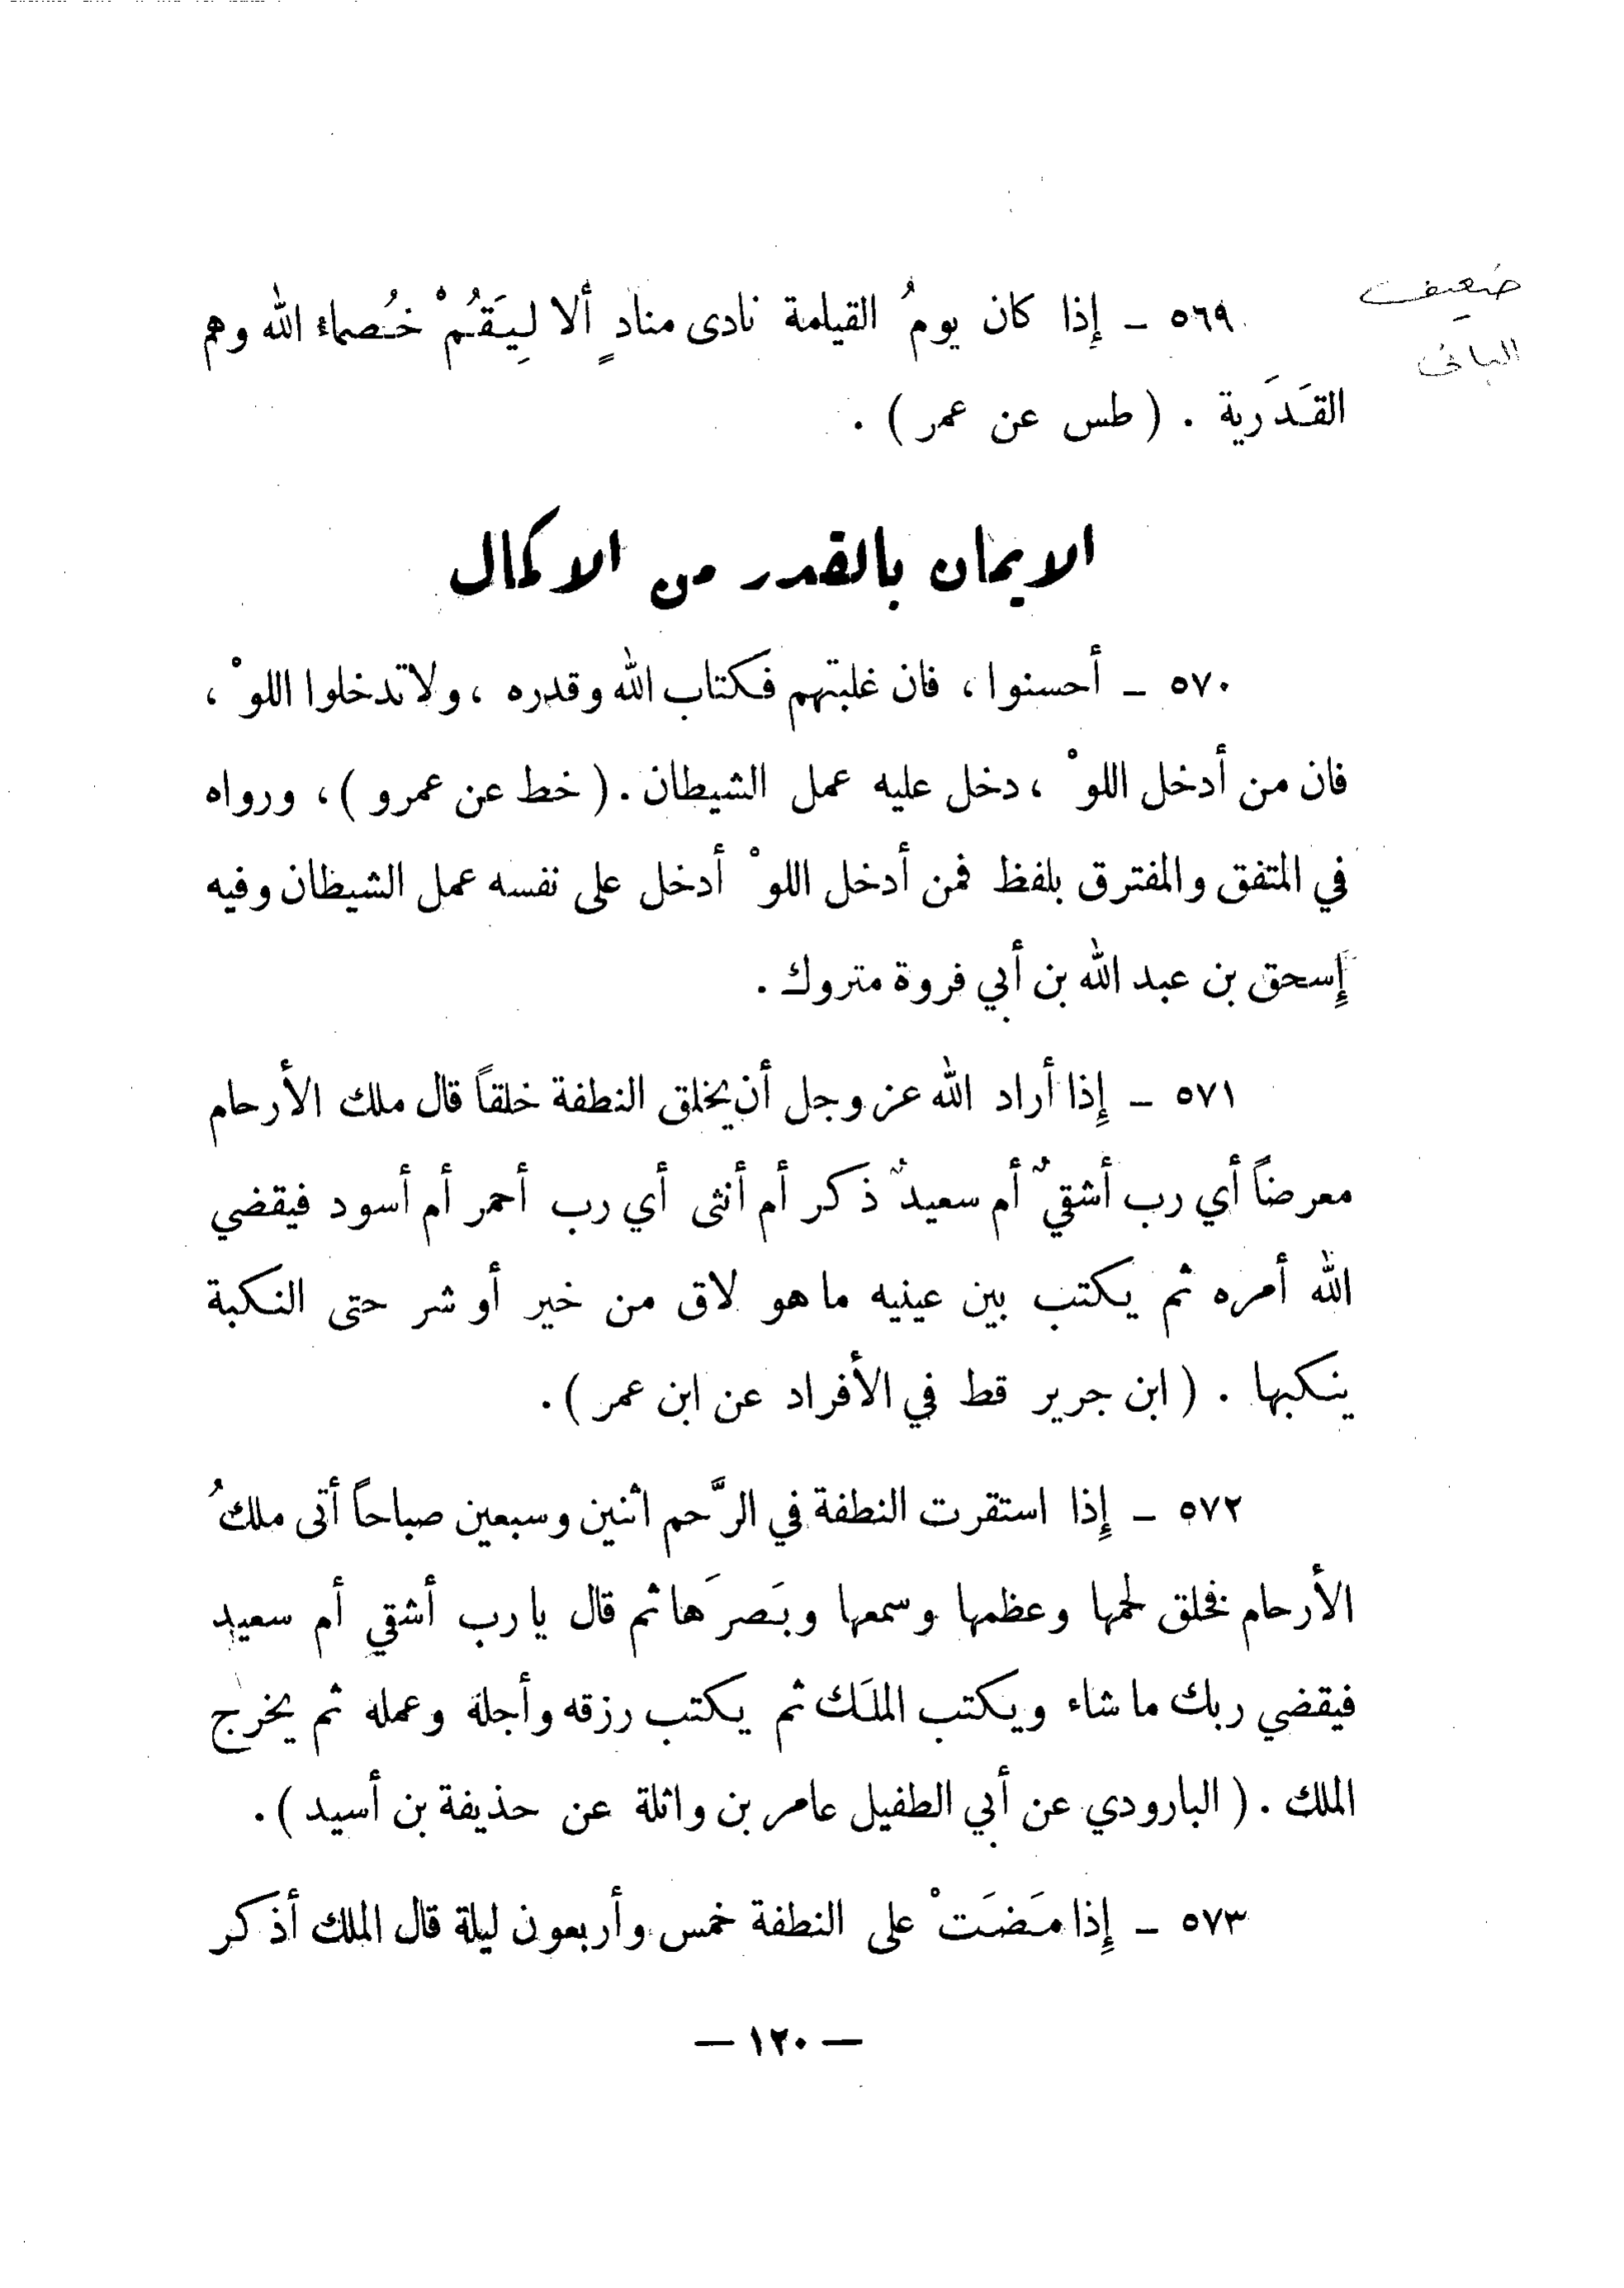 ضعيف
البانى
٥٦٩ ــ إذا كان يومُ القيامة نادى منادٍ ألا لِيَقُمْ خُصماء الله وهم
القَدَرية . ( طس عن عمر ) .
الايمان بالقدر من الاكمال
٥٧٠ ــ أحسنوا ، فان غلبتهم فكتاب الله وقدره ، ولا تدخلوا اللوْ ،
فان من أدخل اللوْ ، دخل عليه عمل الشيطان . ( خط عن عمرو ) ، ورواه
في المتفق والمفترق بلفظ فمن أدخل اللوْ أدخل على نفسه عمل الشيطان وفيه
إسحق بن عبد الله بن أبي فروة متروك .
٥٧١ ــ إذا أراد الله عز وجل أن يخلق النطفة خلقاً قال ملك الأرحام
معرضاً أي رب أشقيٌ أم سعيدٌ ذكر أم أنثى أي رب أحمر أم أسود فيقضي
الله أمره ثم يكتب بين عينيه ما هو لاق من خير أو شر حتى النكبة
ينكبها . ( ابن جرير قط في الأفراد عن ابن عمر ) .
٥٧٢ ــ إذا استقرت النطفة في الرَّحم اثنين وسبعين صباحاً أتى ملكُ
الأرحام فخلق لحمها وعظمها وسمعها وبَصرَها ثم قال يا رب أشقي أم سعيد
فيقضي ربك ما شاء ويكتب الملَك ثم يكتب رزقه وأجله وعمله ثم يخرج
الملك . ( البارودي عن أبي الطفيل عامر بن واثلة عن حذيفة بن أسيد ) .
٥٧٣ ــ إذا مَضَتْ على النطفة خمس وأربعون ليلة قال الملك أذكر
— ١٢٠ —